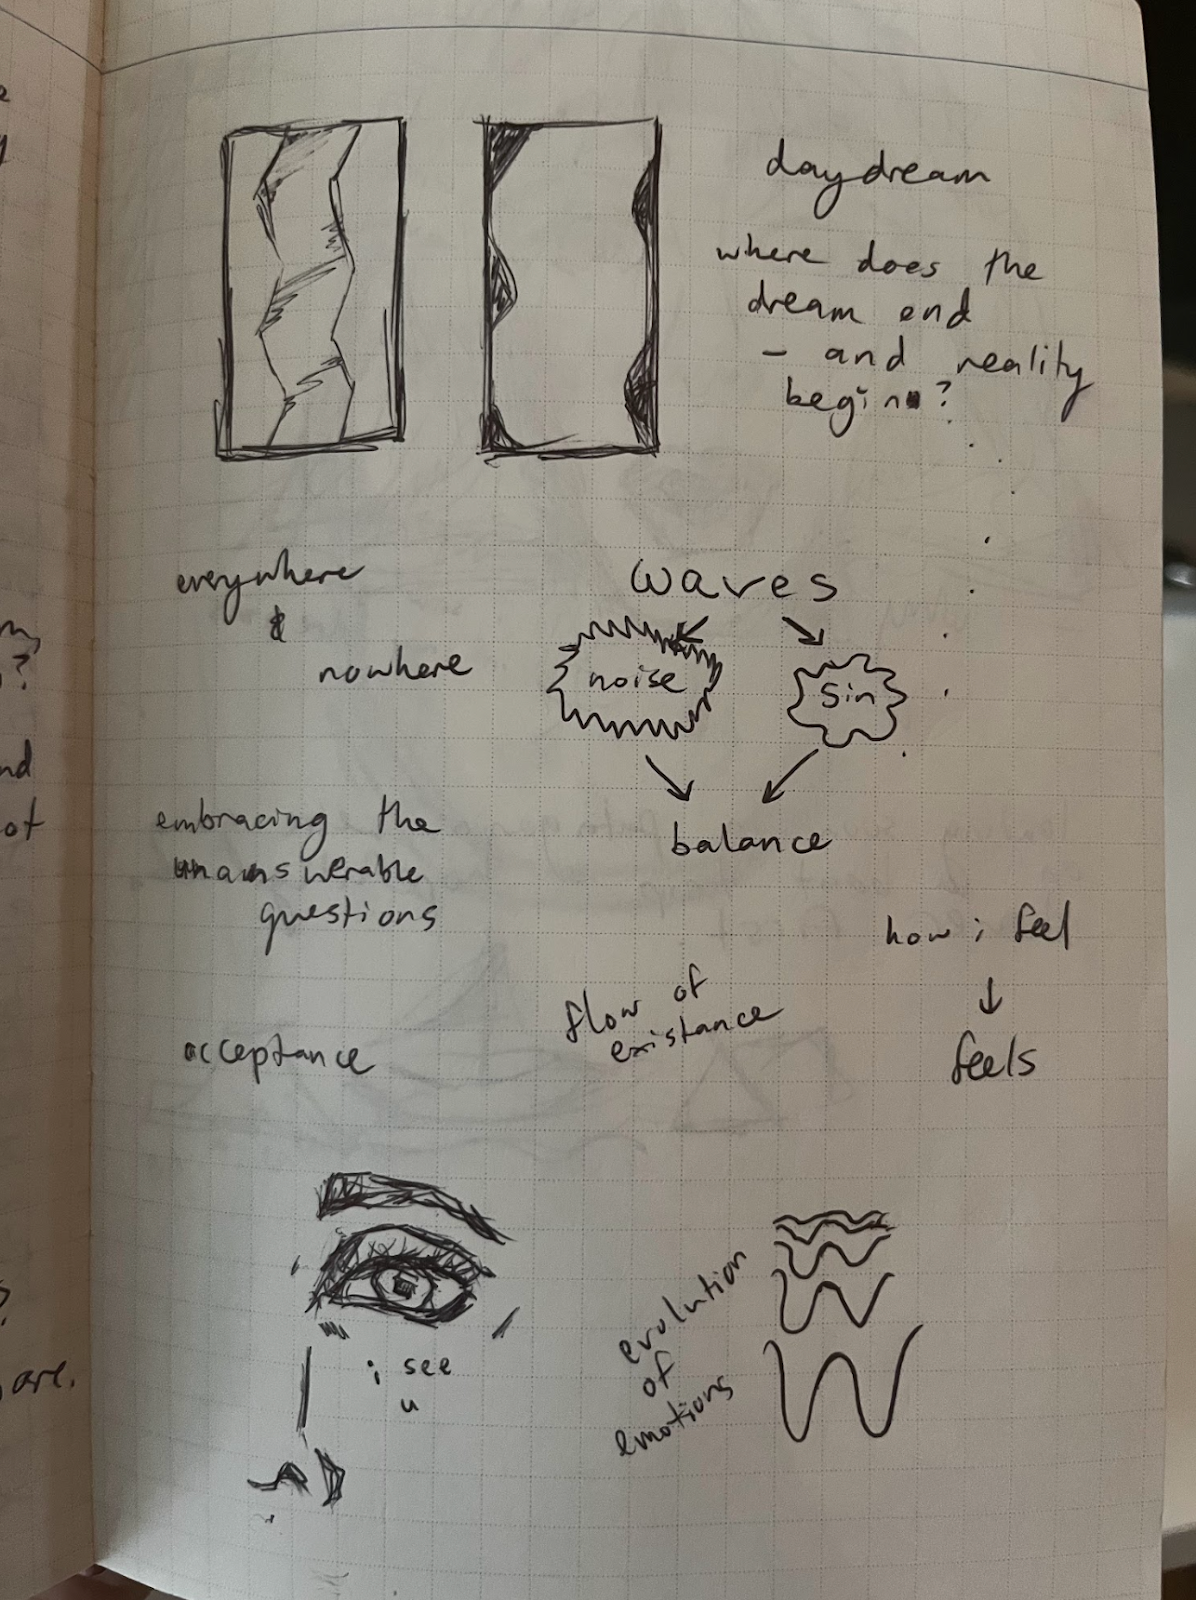 daydream
where does the
dream end
- and reality
begin?
everywhere
&
nowhere
waves
noise
sin
balance
embracing the
unanswerable
questions
how i feel
feels
flow of
existance
acceptance
i see
u
evolution
of
emotions
are.